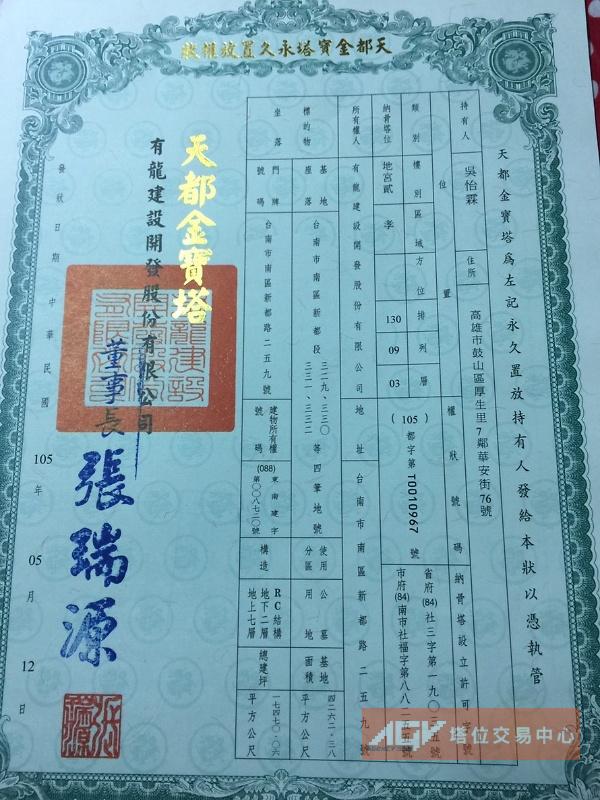 天都金寶塔永久置放權狀
天都金寶塔為左記永久置放持有人發給本狀以憑執管
持有人 吳怡霖 住所 高雄市鼓山區厚生里7鄰華安街76號
類別 位置 權狀號碼 納骨塔設立許可字號
樓別 區域 方位 排 列 層
納骨塔位 地宮貳 孝 130 09 03 (105) 都字第T0010967號
省府(84)社三字第一九○三五號
市府(84)南市社福字第八八二五五號
所有權人 有龍建設開發股份有限公司 地址 台南市南區新都路二五九號
標的物座落
基地座落 台南市南區新都段 三二九、三三○ 三三一、三三二 等四筆地號 使用分區 公墓用地 基地面積 四二六二.三八平方公尺
門牌號碼 台南市南區新都路二五九號 建物所有權號碼 (088)東南建字第○○八七二○號 構造 RC結構 地下二層 地上七層 總建坪 一七四七○.○六平方公尺
天都金寶塔
有龍建設開發股份有限公司
董事長 張瑞源
發狀日期 中華民國 105 年 05 月 12 日
AGV 塔位交易中心